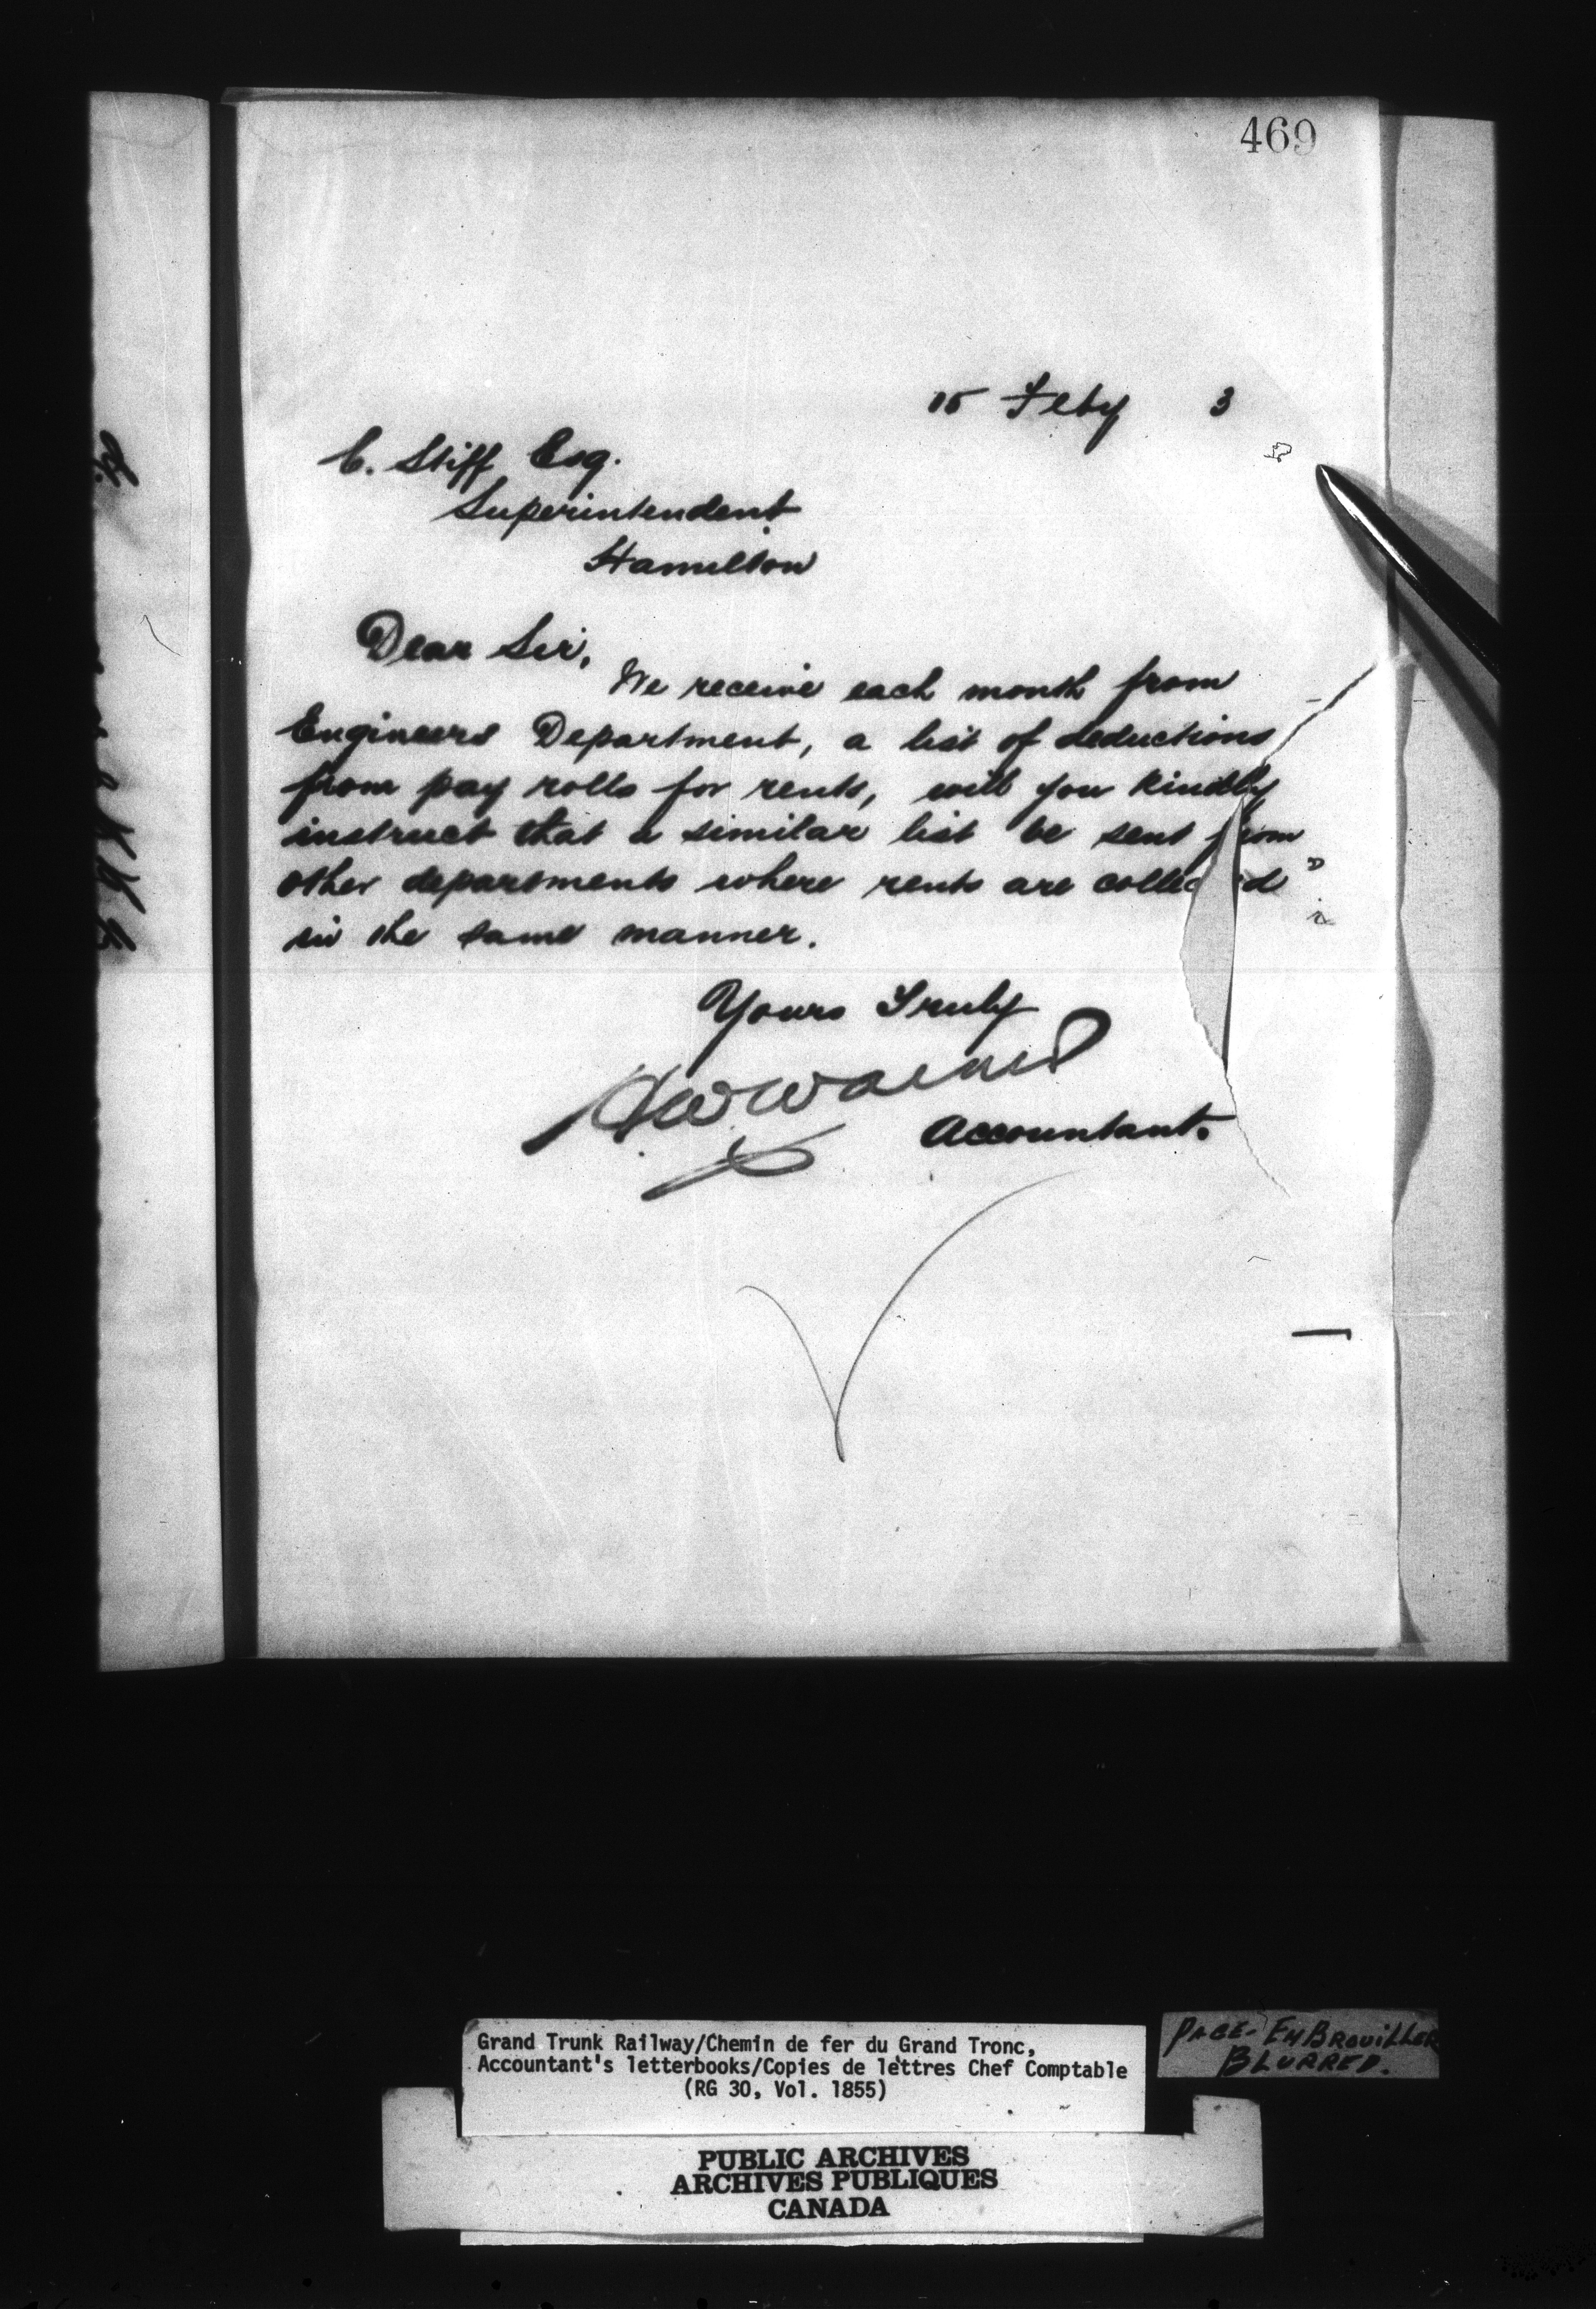 469
15 Feby 3
C. Stiff Esq.
Superintendent
Hamilton
Dear Sir,
We receive each month from
Engineers Department, a list of deductions
from pay rolls for rents, will you kindly
instruct that a similar list be sent from
other departments where rents are collected
in the same manner.
Yours Truly
Accountant.
Grand Trunk Railway/Chemin de fer du Grand Tronc,
Accountant's letterbooks/Copies de lettres Chef Comptable
(RG 30, Vol. 1855)
PAGE-EMBROUILLER
BLURRED.
PUBLIC ARCHIVES
ARCHIVES PUBLIQUES
CANADA